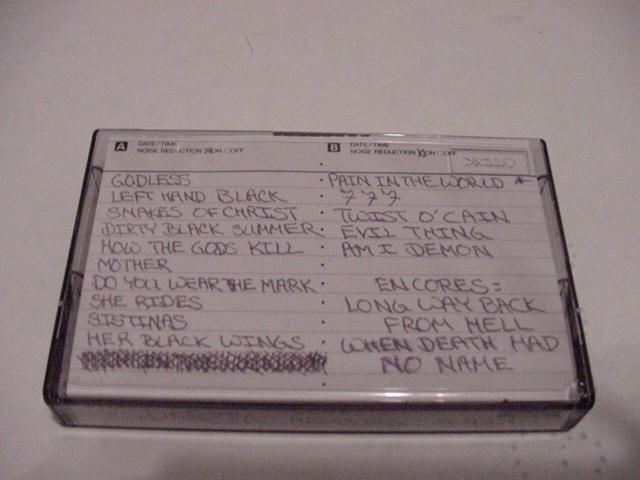 A DATE/TIME
NOISE REDUCTION ON OFF
GODLESS
LEFT HAND BLACK
SNAKES OF CHRIST
DIRTY BLACK SUMMER
HOW THE GODS KILL
MOTHER
DO YOU WEAR THE MARK
SHE RIDES
SISTINAS
HER BLACK WINGS
B DATE/TIME
NOISE REDUCTION ON OFF
PAIN IN THE WORLD *
777
TWIST O' CAIN
EVIL THING
AM I DEMON
ENCORES:
LONG WAY BACK
FROM HELL
WHEN DEATH HAD
NO NAME